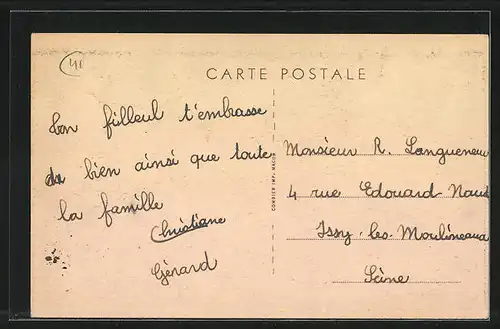 41
CARTE POSTALE
Ton filleul t'embrasse
bien ainsi que toute
la famille
Christiane
Gérard
COMBIER IMP. MACON
Monsieur R. Langueneu
4 rue Edouard Naud
Issy-les-Moulineaux
Seine